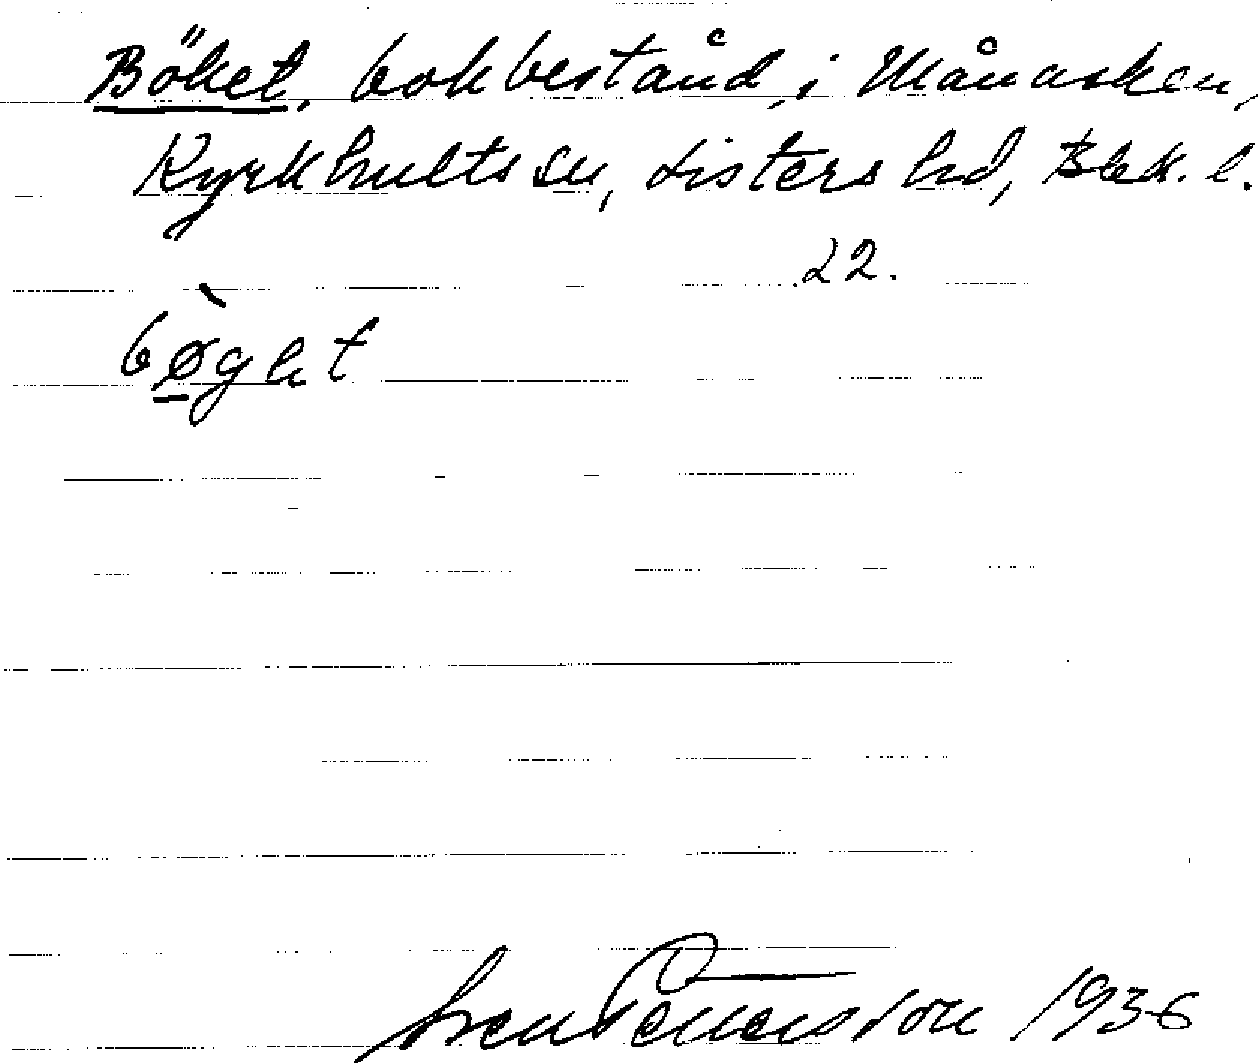 Böket, bokbestånd, i Månasken,
Kyrkhults sn, Listers hd, Blek. l.
22.
bø̀gət
Sven Pettersson 1936